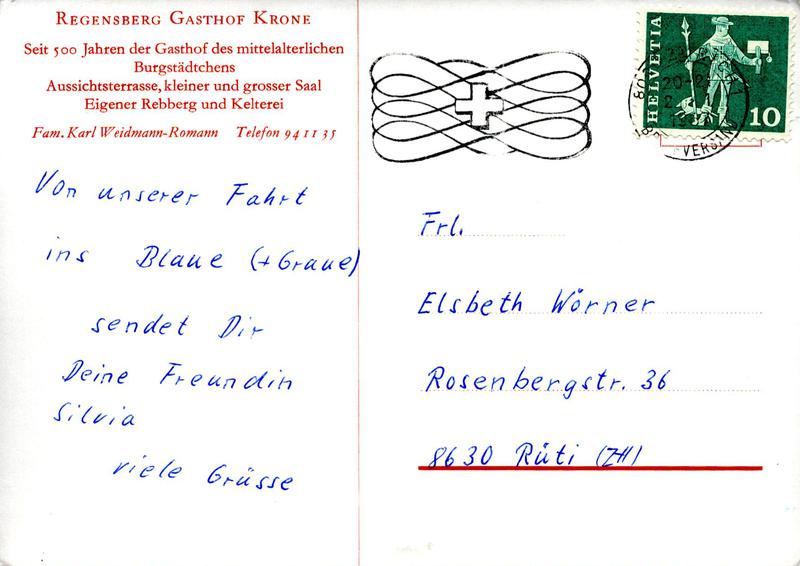 REGENSBERG GASTHOF KRONE
Seit 500 Jahren der Gasthof des mittelalterlichen
Burgstädtchens
Aussichtsterrasse, kleiner und grosser Saal
Eigener Rebberg und Kelterei
Fam. Karl Weidmann-Romann Telefon 94 11 35
Von unserer Fahrt
ins Blaue (+Graue)
sendet Dir
Deine Freundin
Silvia
viele Grüsse
HELVETIA
10
Frl.
Elsbeth Wörner
Rosenbergstr. 36
8630 Rüti (ZH)